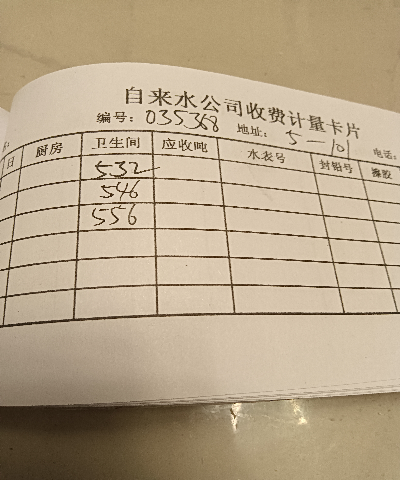 自来水公司收费计量卡片
编号：035368 地址：5—101 电话：
日 厨房 卫生间 应收吨 水表号 封铅号 橡胶
532
546
556